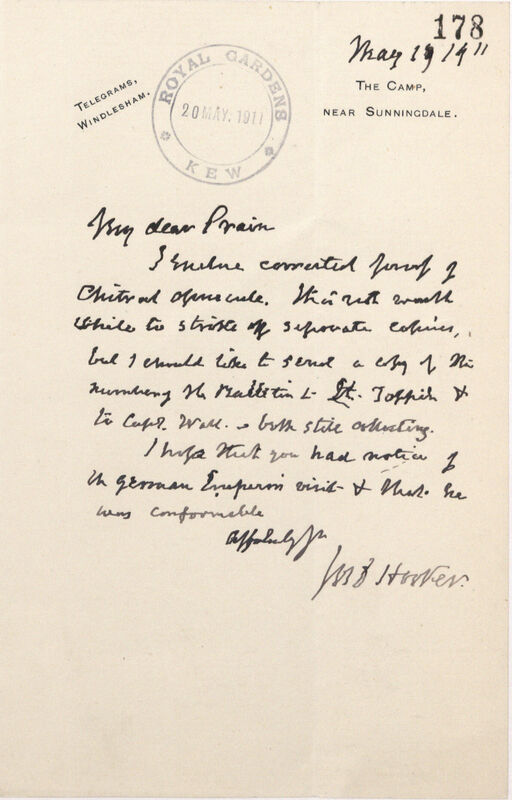 178
May 19 1911
TELEGRAMS,
WINDLESHAM.
ROYAL GARDENS
20 MAY. 1911
KEW
THE CAMP,
NEAR SUNNINGDALE.
My dear Prain
I enclose corrected proof of
Chitral opuscule. It is not worth
while to strike off separate copies,
but I should like to send a copy of the
number of the Bulletin to Lt. Toppin &
to Capt. Wall. both still collecting.
I hope that you had notice of
the German Emperor's visit & that he
was conformable
Jos D Hooker.